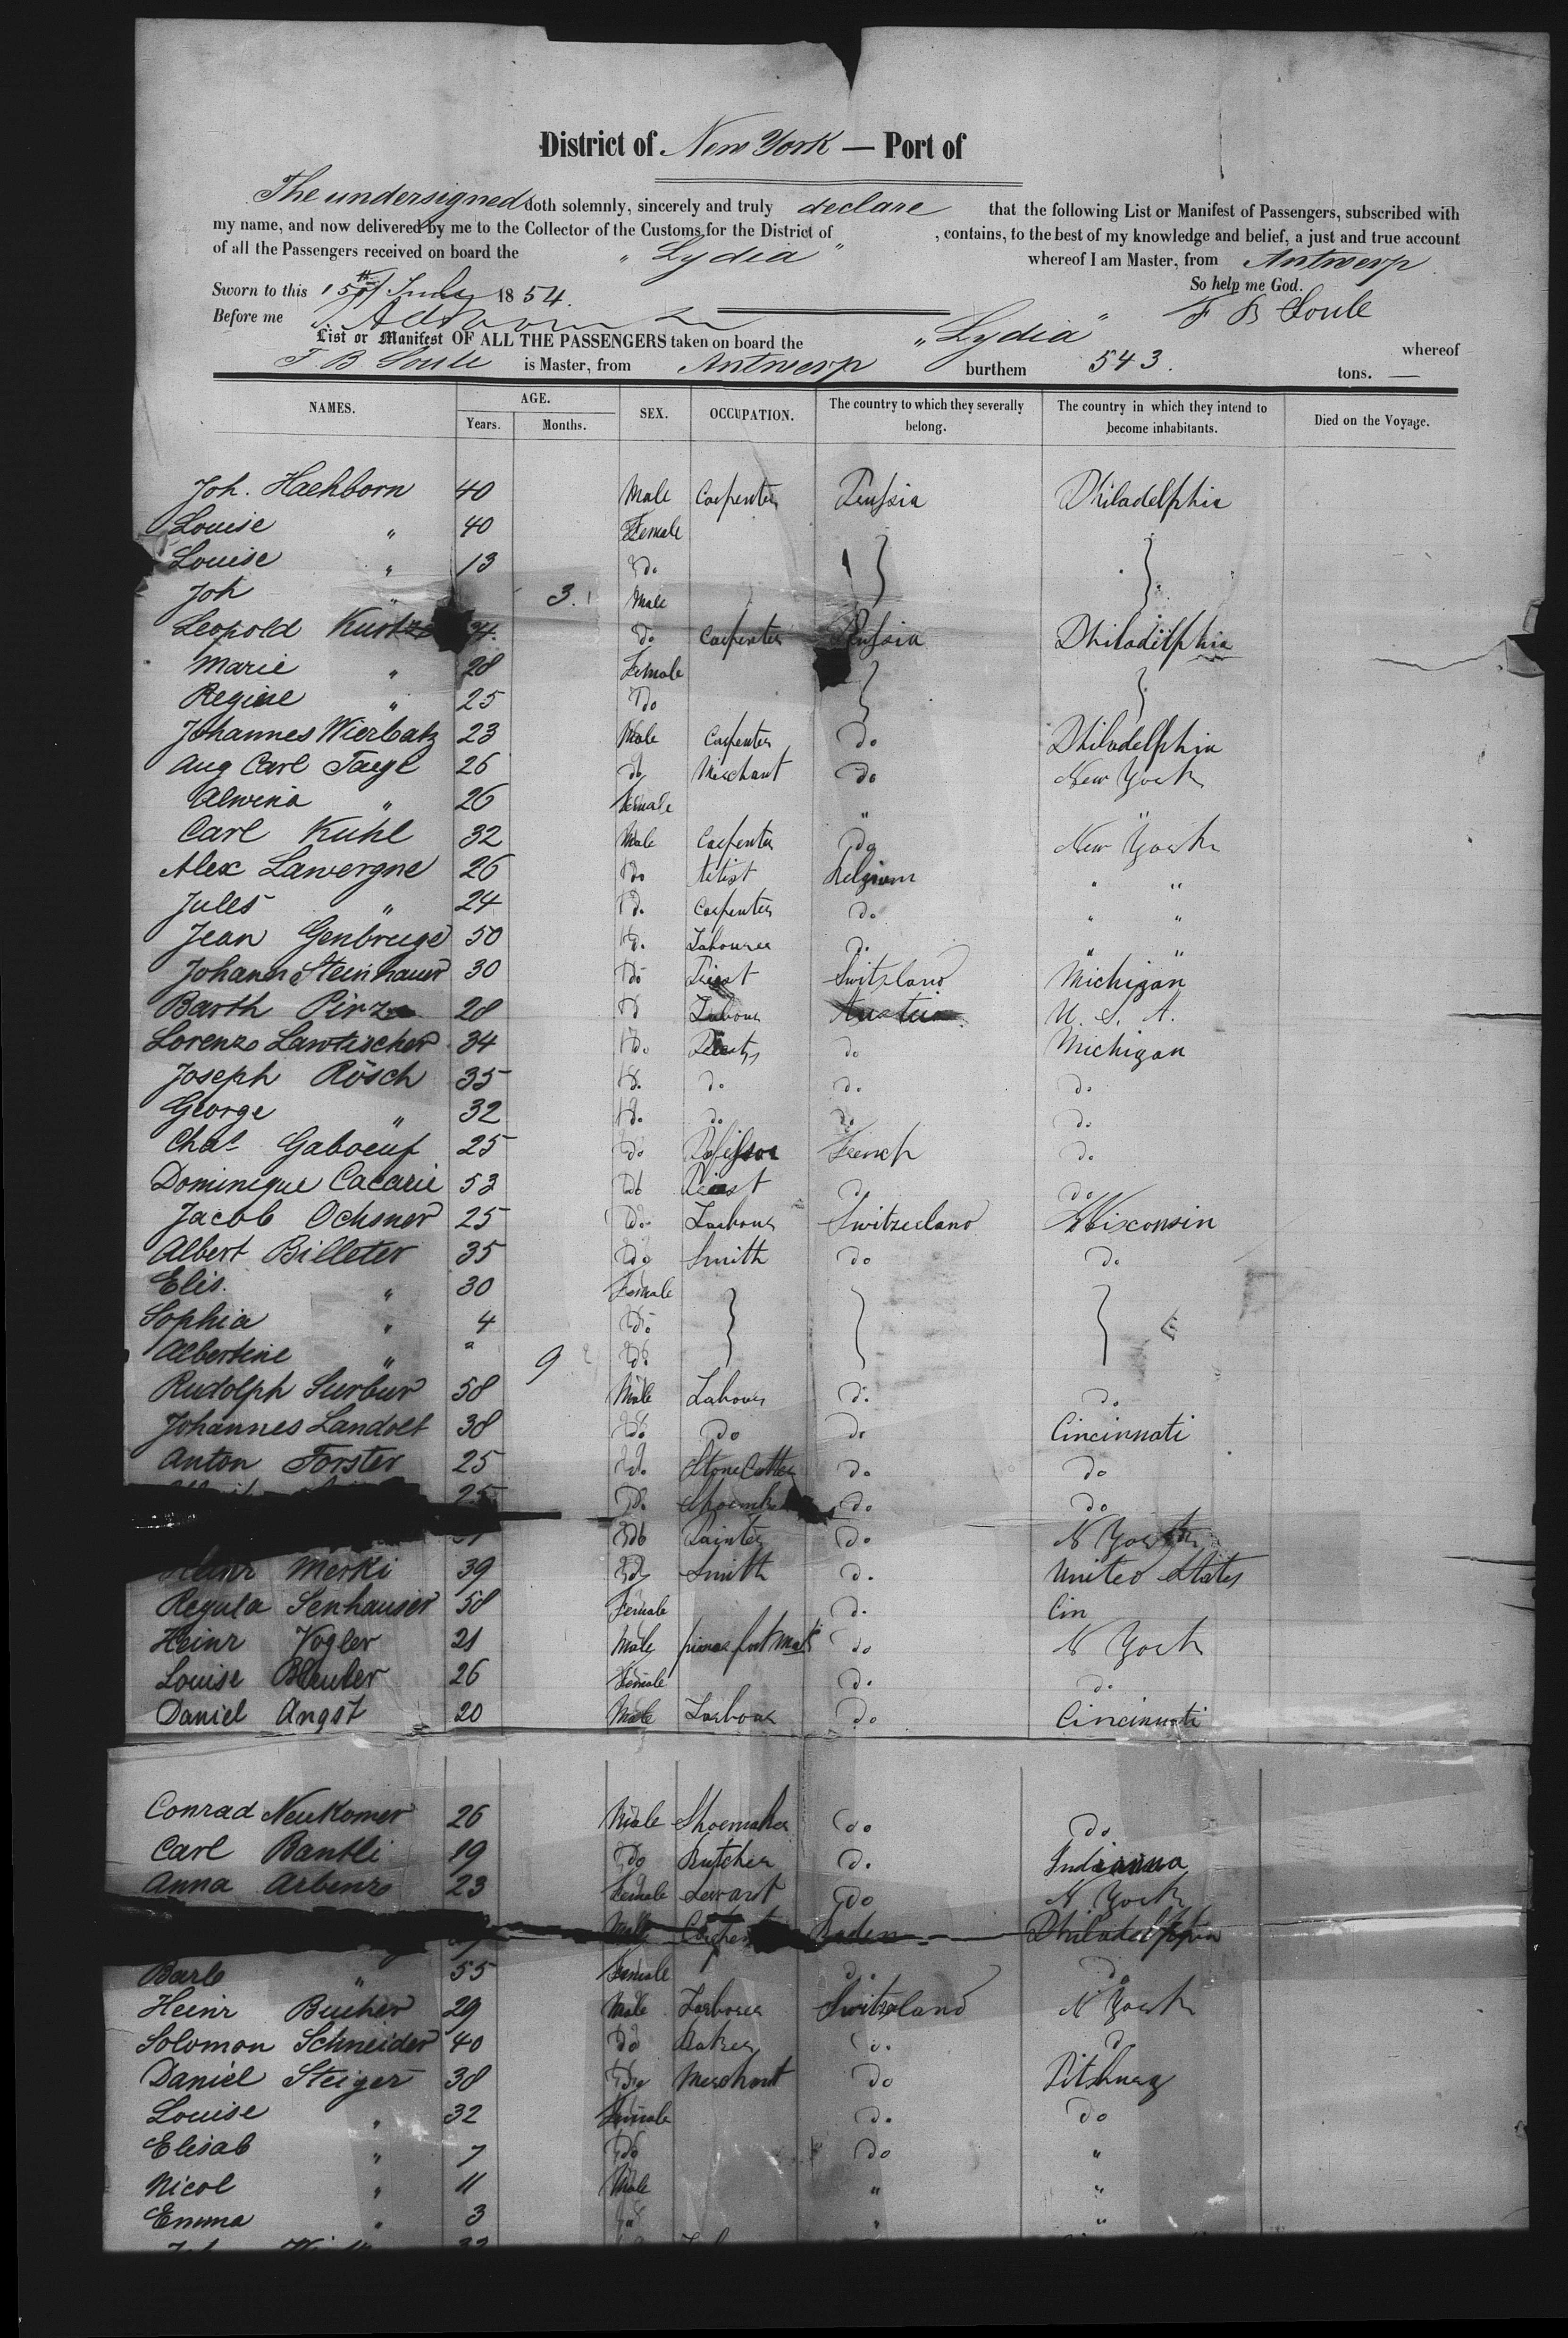 District of New York — Port of
The undersigned doth solemnly, sincerely and truly declare that the following List or Manifest of Passengers, subscribed with
my name, and now delivered by me to the Collector of the Customs for the District of , contains, to the best of my knowledge and belief, a just and true account
of all the Passengers received on board the "Lydia" whereof I am Master, from Antwerp
Sworn to this 15th July 1854. So help me God.
Before me F B Soule
List or Manifest OF ALL THE PASSENGERS taken on board the "Lydia" whereof
F B Soule is Master, from Antwerp burthem 543. tons. —
NAMES. AGE. Years. Months. SEX. OCCUPATION. The country to which they severally belong. The country in which they intend to become inhabitants. Died on the Voyage.
Joh. Hachborn 40 Male Carpenter Prussia Philadelphia
Louise " 40 Female
Louise " 13 Do
Joh " 3. Male
Leopold Do Carpenter Prussia Philadelphia
Marie " 28 Female
Regine " 25 Do
Johannes Wierbatz 23 Male Carpenter Do Philadelphia
Aug Carl Taege 26 do Merchant Do New York
Alwina " 26 Female " "
Carl Kuhl 32 Male Carpenter Do New York
Alex Lavergne 26 Do Artist Belgium " "
Jules " 24 Do. Carpenter Do " "
Jean Genbruge 50 Do. Labourer Do. " "
Johann Steinhauer 30 Do Priest Switzland Michigan
Barth Pirz 28 D Labour Austria U. S. A.
Lorenzo Lawtischer 34 Do Priests do Michigan
Joseph Rösch 35 Do. do. do. do.
George " 32 Do. do. do do.
Chas Gaboeuf 25 Do Professor French do
Dominique Cacarie 53 Do Priest do do
Jacob Ochsner 25 Do. Labour Switzerland Wisconsin
Albert Billeter 35 Do Smith do do.
Elis. " 30 Female
Sophia " 4 Do.
Albertine " " 9 Do.
Rudolph Surbur 58 Male Labour do. do
Johannes Landolt 38 Do. Do do Cincinnati
Anton Forster 25 Do. Stone Cutter do. do
25 Do. do do
Do Painter do. N York
Heinr Merki 39 Do Smith do. United States
Regula Senhauser 58 Female do. Cin
Heinr Vogler 21 Male do N York
Louise Bleuler 26 Female do. do.
Daniel Angst 20 Male Labour do Cincinnati
Conrad Neukomer 26 Male Shoemaker do do
Carl Bantli 19 Do Butcher do. Indianna
Anna Arbenz 23 Female Servant do N. York
Male Baden Philadelphia
Barb " 55 Female do. do
Heinr Bucher 29 Male Labourer Switzland N York
Solomon Schneider 40 Do Baker do. do
Daniel Steiger 38 Do Merchant do Pitsburg
Louise " 32 Female do. do
Elisab " 7 Do do "
Nicol " 11 Male " "
Emma " 3 " "